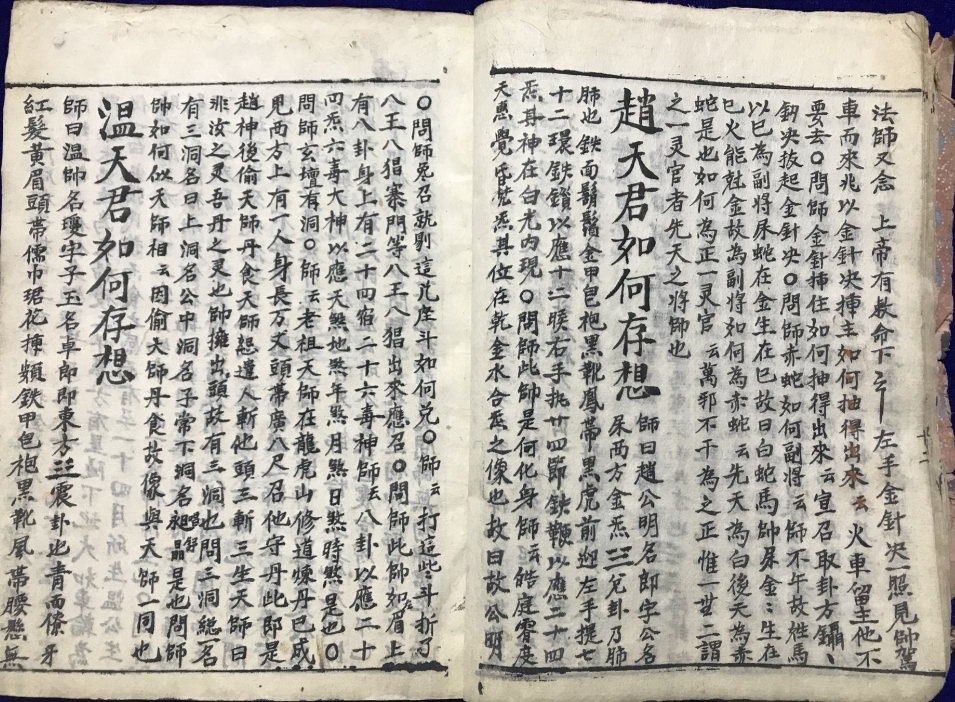 法師又念 上帝有敕命下 左手金針决一照見帥駕
車而來兆以金針决揷主如何抽得出來云火車留主他不
要去〇問師金針揷住如何抽得出來云宣召取卦方鑷
釼央拔起金針决〇問師赤蛇如何副將云師不午故姓馬
以巳為副將屎蛇在金生在巳故曰白蛇馬帥屎金〻生在
巳火能尅金故為副將如何為赤蛇云先天為白後天為赤
蛇是也如何為正一灵官云萬邪不干為之正惟一無二謂
之一灵官者先天之將帥也
趙天君如何存想
師曰趙公明名郎字公名
屎西方金炁三兊卦乃肺
肺也鉄面鬍鬚金甲皂袍黑靴鳳帶黑虎前迎左手提七
十二環鉄鎖以應十二 右手執廿四節鉄鞭以應二十四
炁其神在白光内現〇問師此帥是何化身師云皓庭霄度
天惠覺昏 炁其位在乾金水合炁之像也故曰故公明
〇問師兇召就剹這 座斗如何兊〇師云打這些斗折了
八王八猖寨門等八王八猖出來應召〇問師此帥如眉上
有八卦身上有二十四宿二十六毒神師云八卦以應二十
四炁六毒大神以應天煞地煞年煞月煞日煞時煞是也〇
問師玄壇有洞〇師云老祖天師在龍虎山修道煉丹已成
見西方上有一人身長万丈頭帶廣八尺召他守丹此郎是
趙神後偷天師丹食天師怒遣人斬他頭三斬三生天師曰
非汝之灵吾丹之灵也師擁出頭故有三洞也問三洞総名
有三洞名曰上洞名公中洞名子常下洞名 是也問師
帥如何似天師相云因偷天師丹食故像與天師一同也
溫天君如何存想
師曰溫帥名瓊字子玉名卓郎即東方三震卦也青面僚牙
紅髮黃眉頭帶儒巾珺花揀類鉄甲皂袍黑靴風帶腰懸無